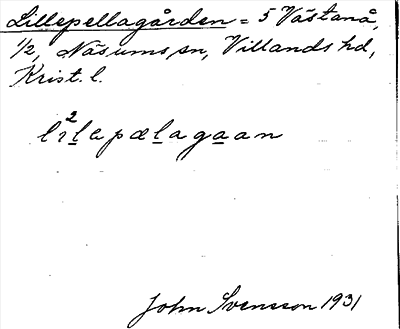 Lillepellagården = 5 Västanå,
1/2, Näsums sn, Villands hd,
Krist. l.
lı²lepælagaan
John Svensson 1931